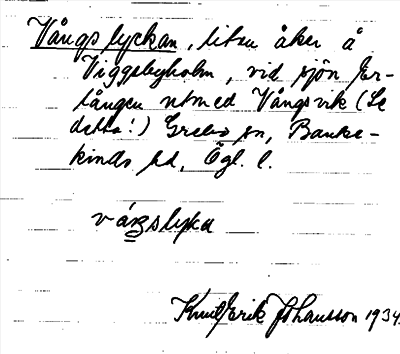 Vångslyckan, liten åker å
Viggebyholm, vid sjön Er-
lången utmed Vångsvik (Se
detta!) Grebo sn, Banke-
kinds hd, Ögl. l.
våŋslyka
Knut Erik Johansson 1934.